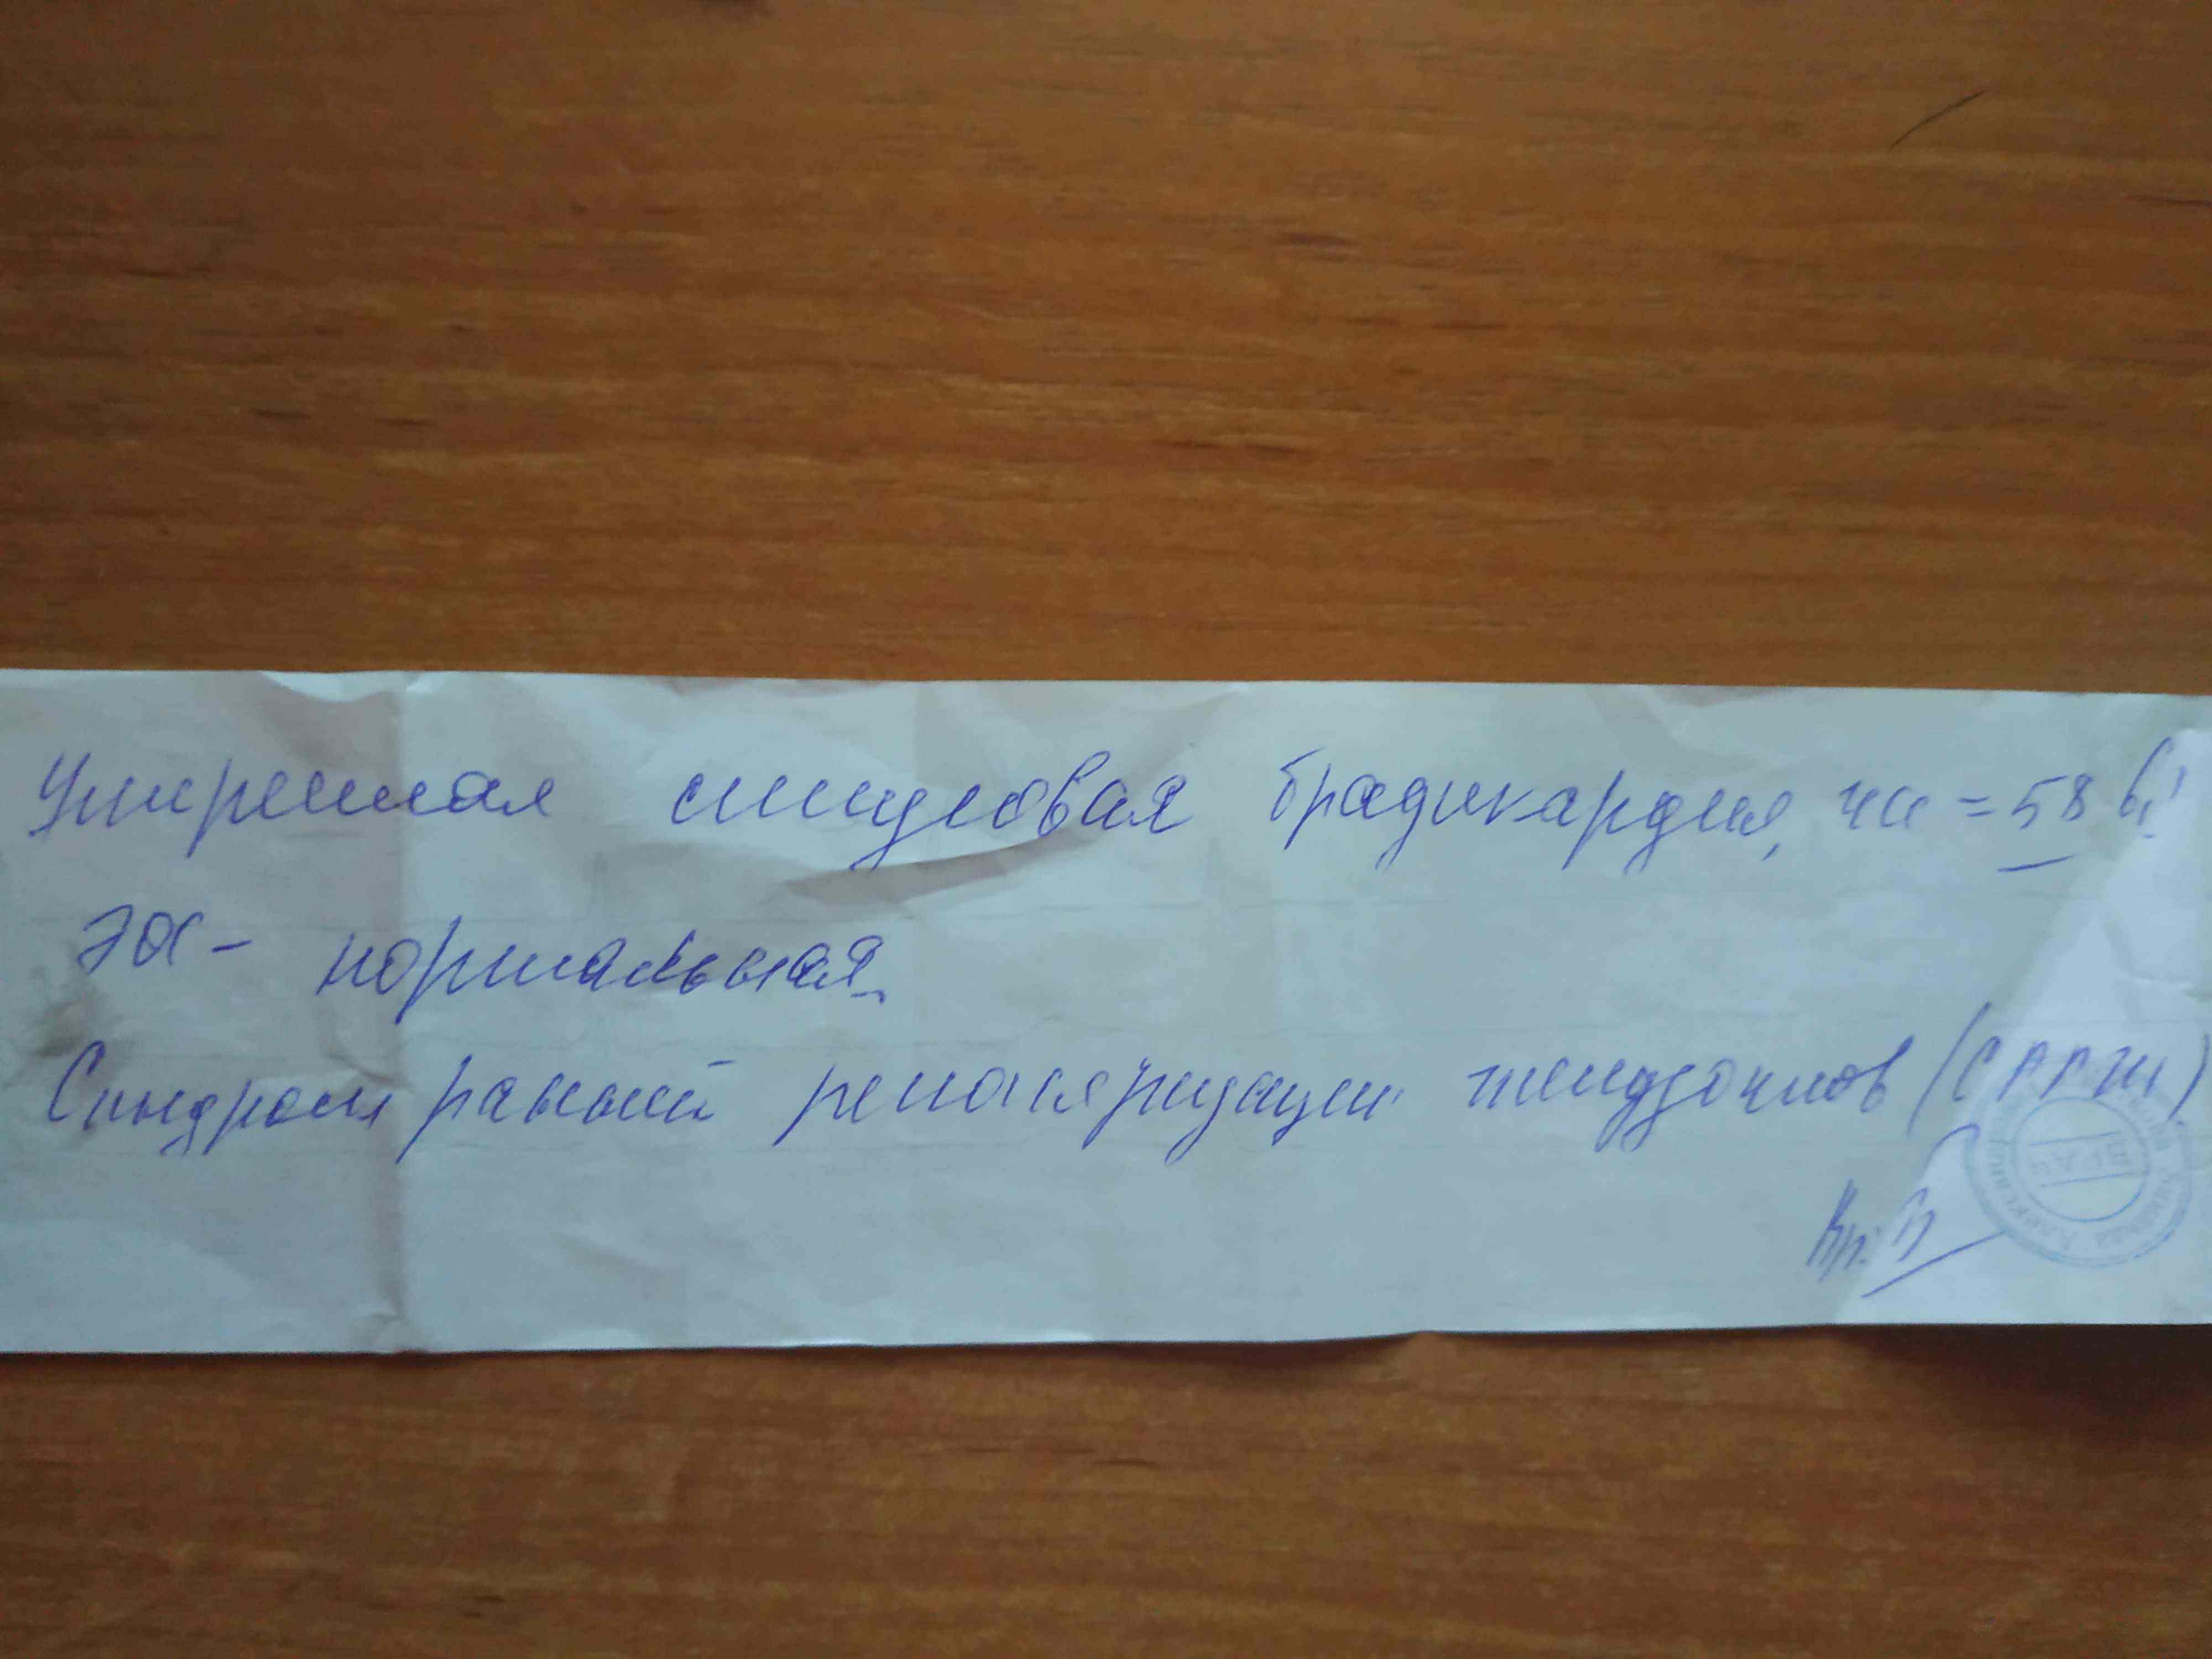 Умеренная синусовая брадикардия, чсс = 58 в 1'
ЭОС - нормальная.
Синдром ранней реполяризации желудочков (СРРЖ)
Вр:
ВРАЧ